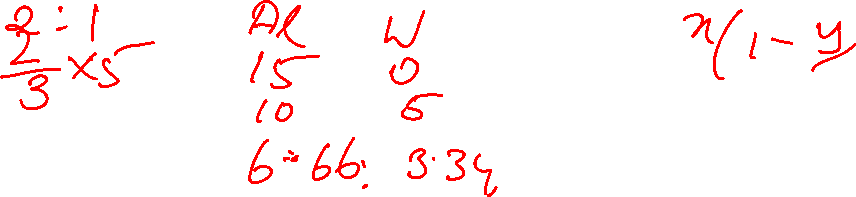 2 : 1
2/3 × 5
Al W
15 0
10 5
6.66 : 3.34
x(1 - y